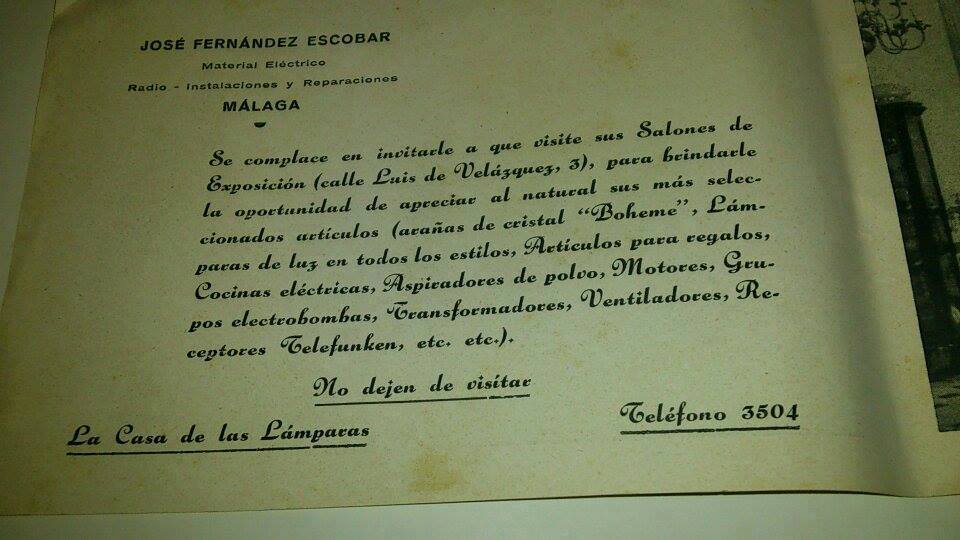 JOSÉ FERNÁNDEZ ESCOBAR
Material Eléctrico
Radio - Instalaciones y Reparaciones
MÁLAGA
Se complace en invitarle a que visite sus Salones de
Exposición (calle Luis de Velázquez, 3), para brindarle
la oportunidad de apreciar al natural sus más selec-
cionados artículos (arañas de cristal "Boheme", Lám-
paras de luz en todos los estilos, Artículos para regalos,
Cocinas eléctricas, Aspiradores de polvo, Motores, Gru-
pos electrobombas, Transformadores, Ventiladores, Re-
ceptores Telefunken, etc. etc.).
No dejen de visitar
La Casa de las Lámparas
Teléfono 3504